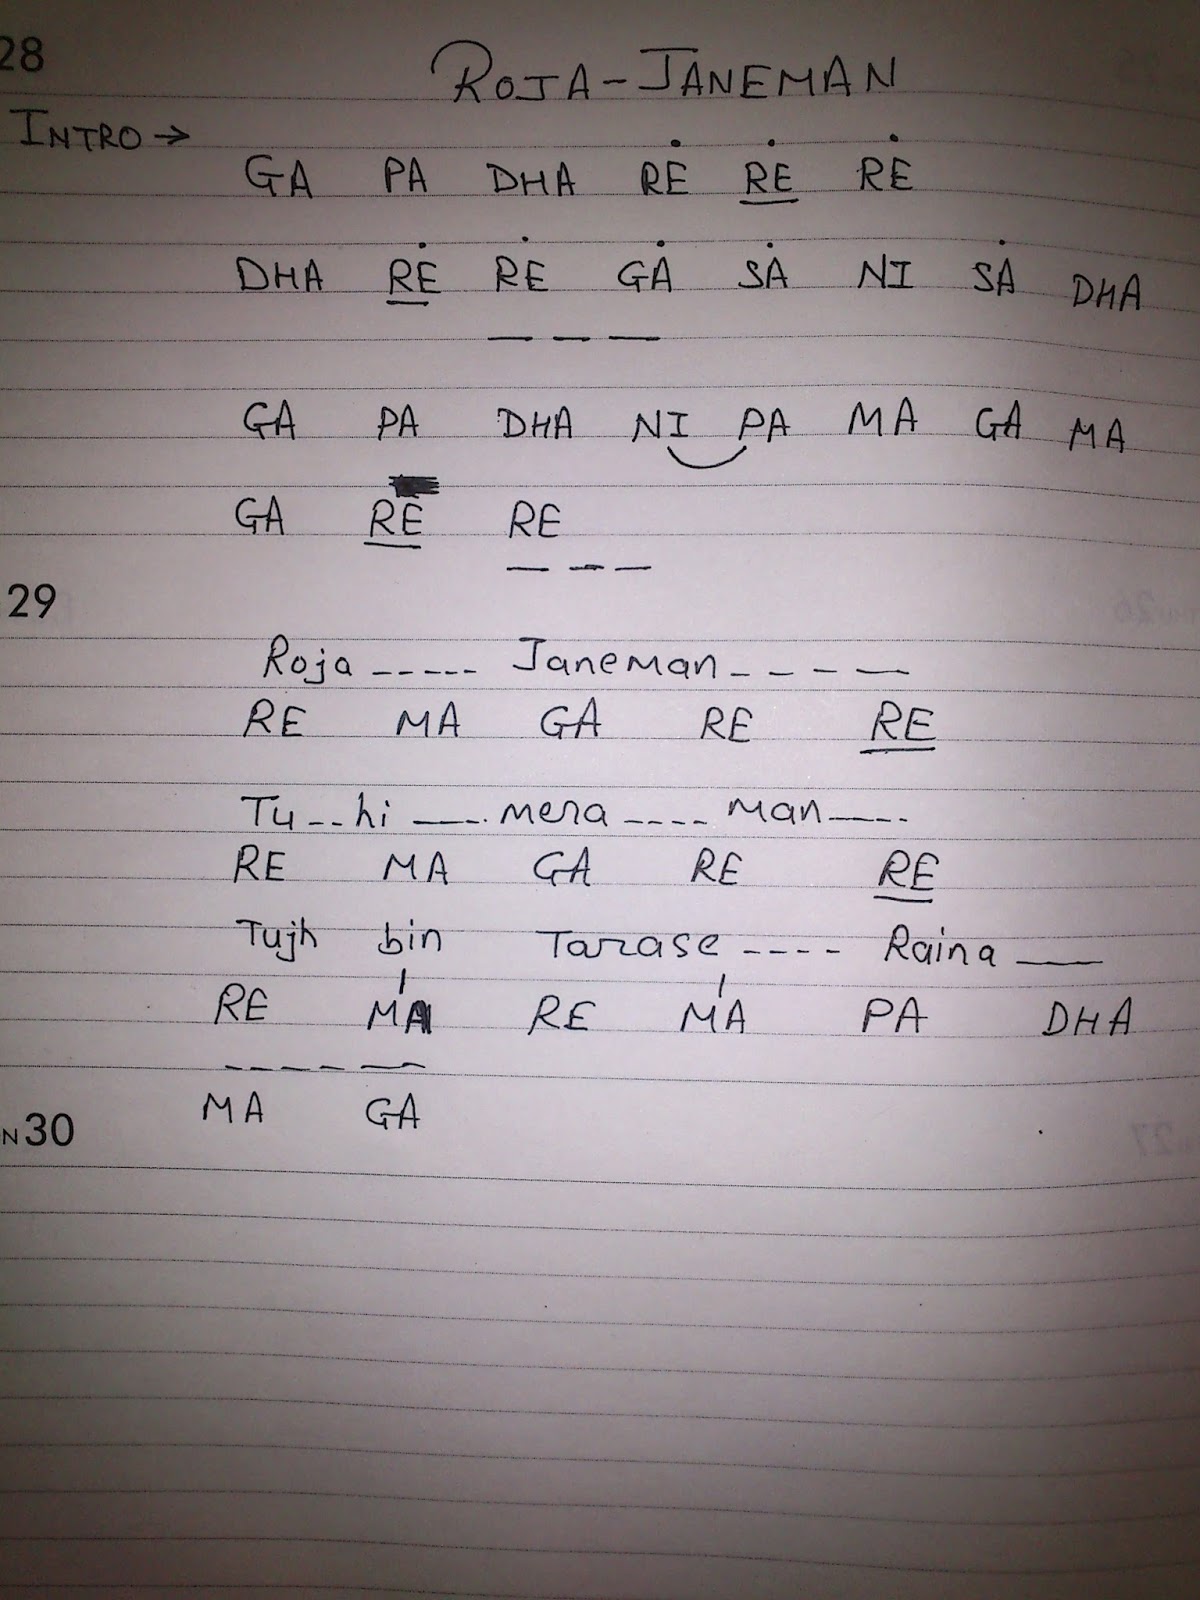 28
ROJA-JANEMAN
INTRO →
GA PA DHA RĖ RĖ RĖ
DHA RĖ RĖ GȦ SȦ NI SȦ DHA
_ _ _
GA PA DHA NI PA MA GA MA
GA RE RE
_ _ _
29
Roja ----- Janeman - - - —
RE MA GA RE RE
Tu -- hi ---. mera ---- man ----
RE MA GA RE RE
Tujh bin Tarase ---- Raina —
RE MA RE MA PA DHA
- - - - —
MA GA
N 30